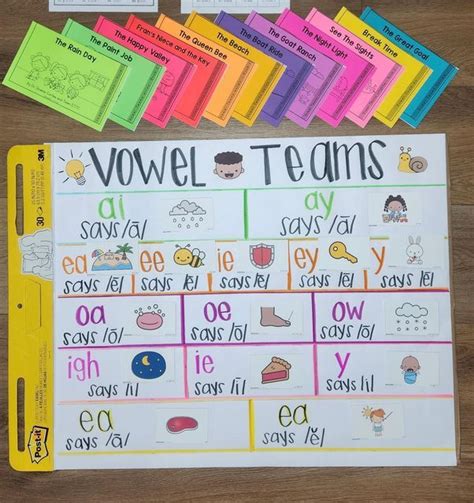 The Rain Day
The Paint Job
The Happy Valley
Fran's Niece and the Key
The Queen Bee
The Beach
The Boat Ride
The Goat Ranch
The Night Light
See The Sights
Break Time
The Great Goal
VOWEL TEAMS
ai
says /ā/
ay
says /ā/
ea
says /ē/
ee
says /ē/
ie
says /ē/
ey
says /ē/
y
says /ē/
oa
says /ō/
oe
says /ō/
ow
says /ō/
igh
says /ī/
ie
says /ī/
y
says /ī/
ea
says /ā/
ea
says /ĕ/
3M
30
Post-it